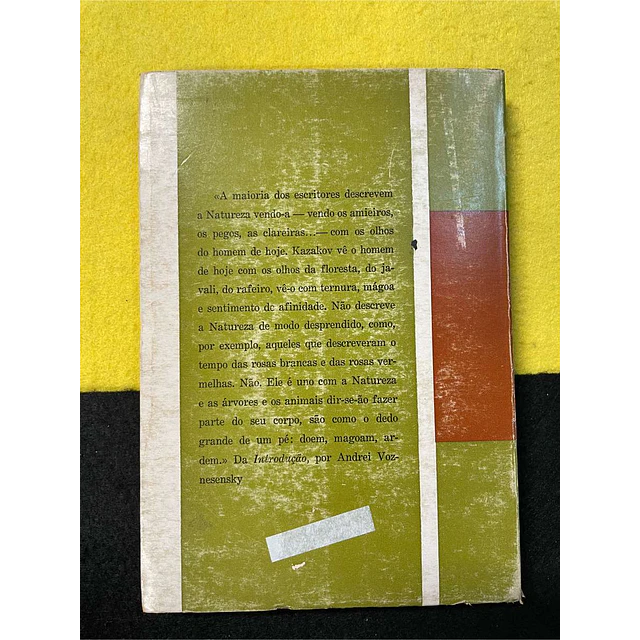 «A maioria dos escritores descrevem
a Natureza vendo-a — vendo os amieiros,
os pegos, as clareiras...— com os olhos
do homem de hoje. Kazakov vê o homem
de hoje com os olhos da floresta, do ja-
vali, do rafeiro, vê-o com ternura, mágoa
e sentimento de afinidade. Não descreve
a Natureza de modo desprendido, como,
por exemplo, aqueles que descreveram o
tempo das rosas brancas e das rosas ver-
melhas. Não. Ele é uno com a Natureza
e as árvores e os animais dir-se-ão fazer
parte do seu corpo, são como o dedo
grande de um pé: doem, magoam, ar-
dem.» Da Introdução, por Andrei Voz-
nesensky